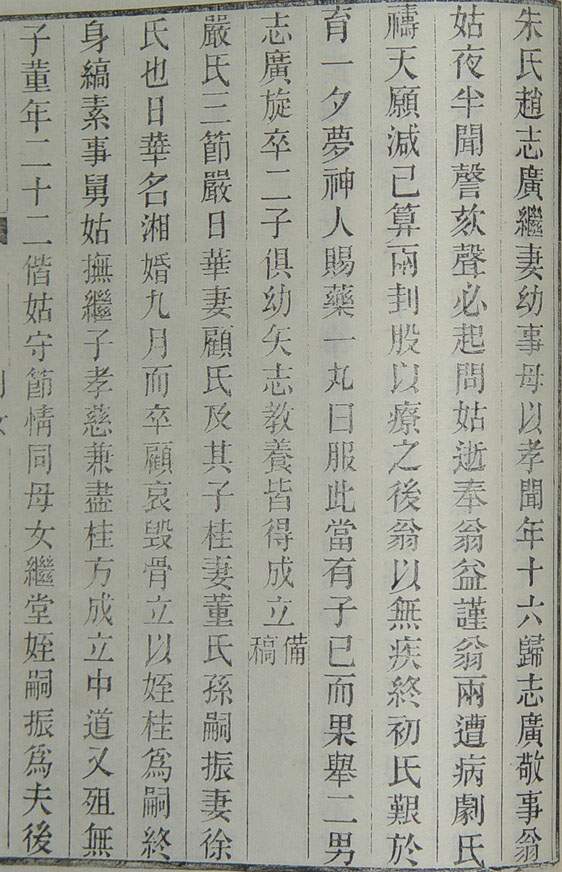 朱氏趙志廣繼妻幼事母以孝聞年十六歸志廣敬事翁
姑夜半聞謦欬聲必起問姑逝奉翁益謹翁兩遭病劇氏
禱天願減已算兩刲股以療之後翁以無疾終初氏艱於
育一夕夢神人賜藥一丸曰服此當有子已而果舉二男
志廣旋卒二子俱幼矢志教養皆得成立備稿
嚴氏三節嚴日華妻顧氏及其子桂妻董氏孫嗣振妻徐
氏也日華名湘婚九月而卒顧哀毀骨立以姪桂為嗣終
身縞素事舅姑撫繼子孝慈兼盡桂方成立中道又殂無
子董年二十二偕姑守節情同母女繼堂姪嗣振為夫後